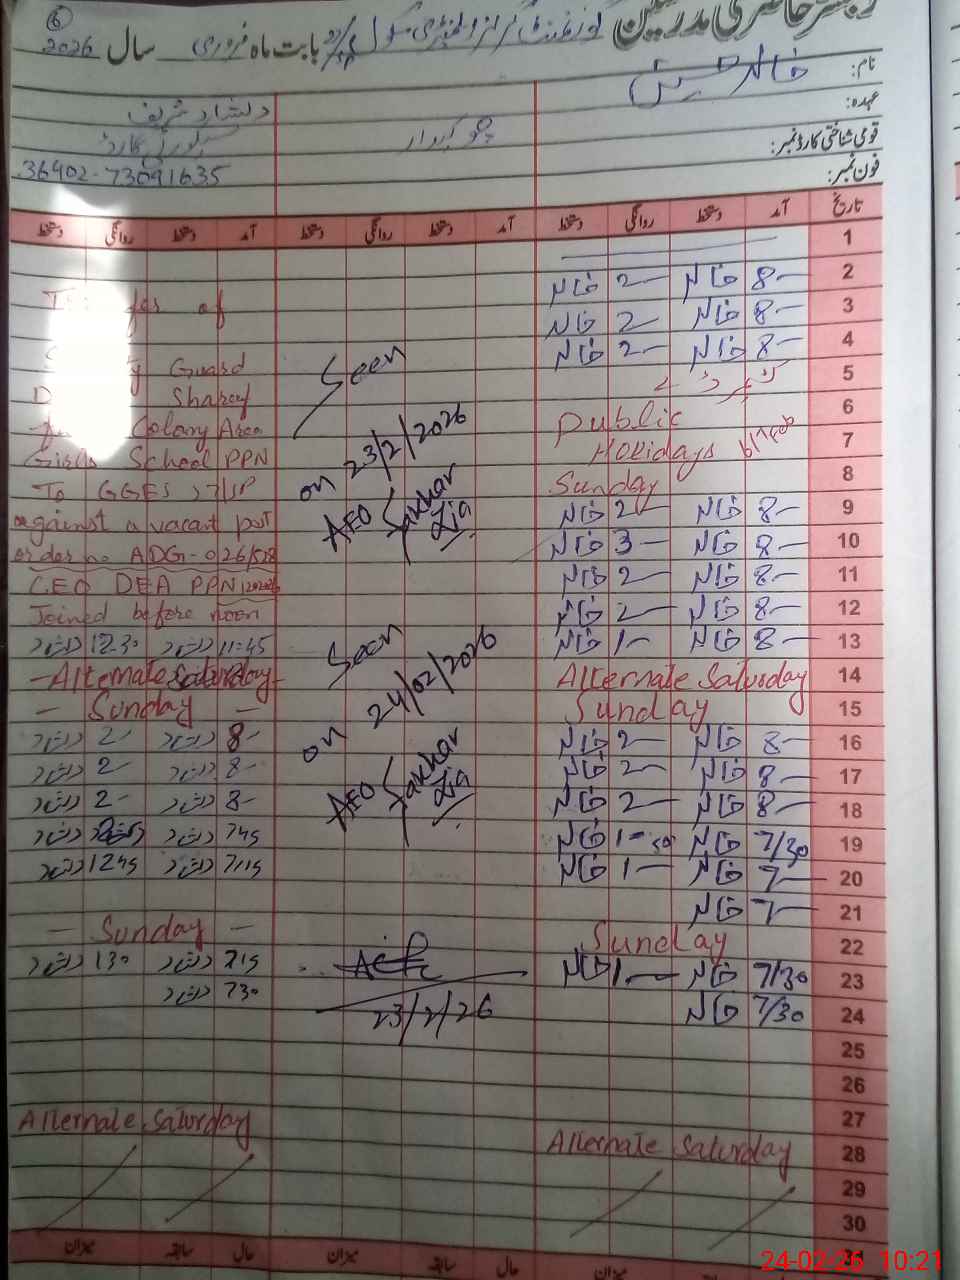 6
رجسٹر حاضری مدرسین گورنمنٹ گرلز ایلیمنٹری سکول بابت ماہ فروری سال 2026
نام: خالد حسین
عہدہ: دلشاد شریف
قومی شناختی کارڈ نمبر: چوکیدار سکورٹی گارڈ
فون نمبر: 36402-73091635
تاریخ آمد دستخط روانگی دستخط آمد دستخط روانگی دستخط آمد دستخط روانگی دستخط
1
2 8- خالد 2- خالد
3 8- خالد 2- خالد of
4 8- خالد 2- خالد
5 Seen Guard
6 Public Sharef
7 Holidays on 23/2/2026 Colany Area
8 Sunday School PPN
9 8- خالد 2- خالد AEO Sakhar Zia To GGES
10 8- خالد 3- خالد against a vacant post
11 8- خالد 2- خالد order no ADG-
12 8- خالد 2- خالد CEO DEA PPN
Joined before noon
13 8- خالد 1- خالد Seen 11:45 دلشاد 12.30 دلشاد
14 Alternate Saturday -Alternate Saturday-
15 Sunday on 24/02/2026 - Sunday -
16 8- خالد 2- خالد 8- دلشاد 2- دلشاد
17 8- خالد 2- خالد AEO Sakhar Zia 8- دلشاد 2- دلشاد
18 8- خالد 2- خالد 8- دلشاد 2- دلشاد
19 7/30 خالد 1-50 خالد 745 دلشاد دلشاد
20 7- خالد 1- خالد 7115 دلشاد 1245 دلشاد
21 7- خالد
22 Sunday - Sunday -
23 7/30 خالد 1- خالد 715 دلشاد 130 دلشاد
24 7/30 خالد 23/2/26 730 دلشاد
25
26
27
28 Alternate Saturday Alternate Saturday
29
30
حال سابقہ میزان حال سابقہ میزان
24-02-26 10:21